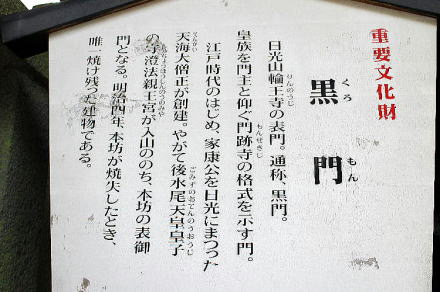 重要文化財
黒門
くろもん
日光山輪王寺の表門。通称、黒門。
りんのうじ
皇族を門主と仰ぐ門跡寺の格式を示す門。
もんぜきじ
江戸時代のはじめ、家康公を日光にまつった
天海大僧正が創建。やがて後水尾天皇皇子
ごみずのおてんのうおうじ
の守澄法親王宮が入山ののち、本坊の表御
門となる。明治四年、本坊が焼失したとき、
唯一焼け残った建物である。